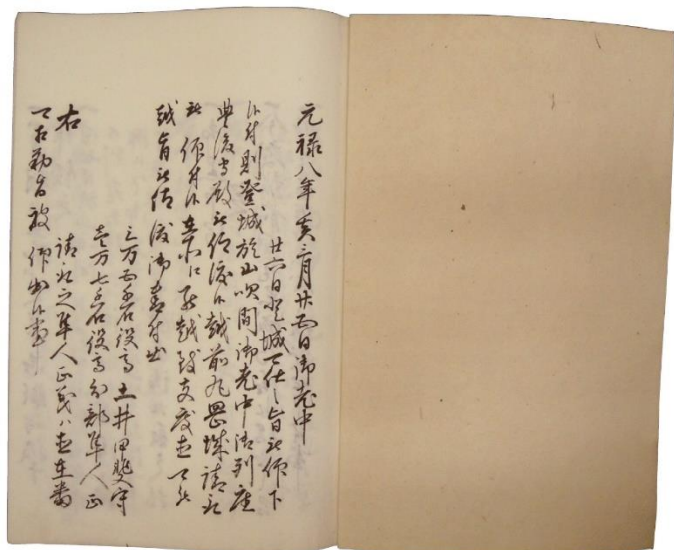 元禄八年亥三月廿四日御老中
廿六日登城可仕之旨被仰下
候付則登城於山吹間御老中御列座
豊後守殿被仰渡候越前丸岡城請取
被 仰付候 罷越致支度 可
越旨被仰渡御書付出
三万四千石役高 土井甲斐守
壱万七千石役高 分部隼人正
請取之隼人正義ハ 在番
右
可相勤旨被 仰出候